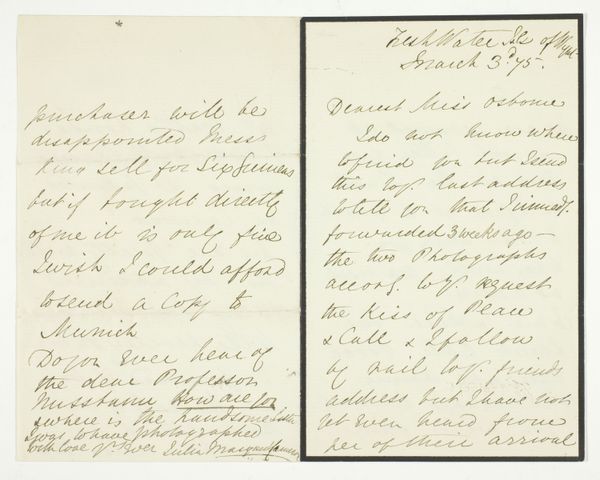 Fresh Water Isle of Wight
March 3.d 75.
Dearest Miss Osborne
I do not know where
to find you but I send
this to yr. last address
to tell you that I immedy.
forwarded 3 weeks ago —
the two Photographs
accordg. to yr. request
the Kiss of Peace
& Call & I follow
by rail to yr. friends
address but I have not
yet even heard from
her of their arrival
purchaser will be
disappointed Messrs
King sell for Six Guineas
but if bought directly
of me it is only five
I wish I could afford
to send a Copy to
Munich
Do you ever hear of
the dear Professor
Nussbaum How are you
& where is the handsome
I was to have photographed
with love yrs ever Julia Margaret Cameron